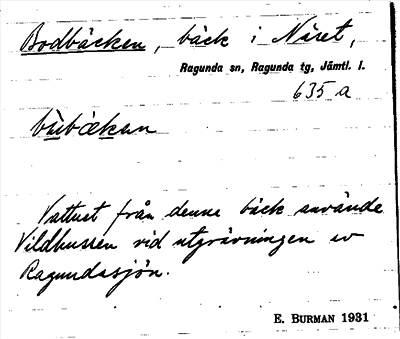 Bodbäcken, bäck i Näset,
Ragunda sn, Ragunda tg, Jämtl. l.
635 a
Vattnet från denne bäck använde
Vildhussen vid utgrävningen av
Ragundasjön.
E. BURMAN 1931